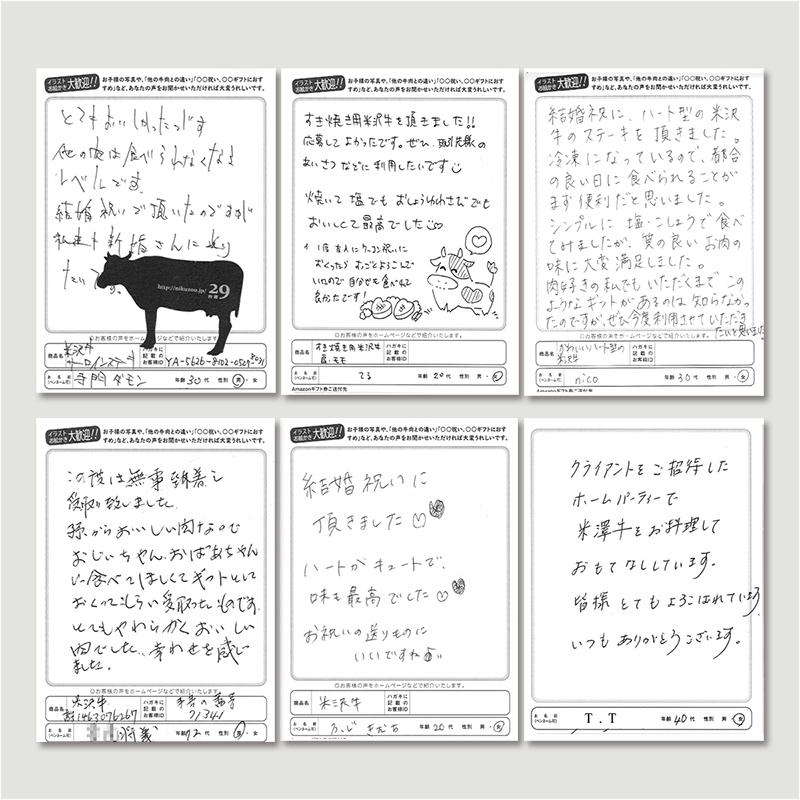 イラスト お絵かき 大歓迎!!
お子様の写真や、「他の牛肉との違い」「〇〇祝い、〇〇ギフトにおす
すめ」など、あなたの声をお聞かせいただければ大変うれしいです。
とてもおいしかったです
他の肉は食べられなくなる
レベルです。
結婚祝いで頂いたのですが
私達も新婚さんに送り
たいです。
http://nikuzoo.jp/ 29
肉蔵
〇お客様の声をホームページなどで紹介いたします。
商品名 米沢牛 サーロインステーキ
ハガキに記載のお客様ID YA-5626-8102-0529
お名前(ペンネーム可) 寺門ダモン 年齢 30代 性別 男・女
イラスト お絵かき 大歓迎!!
お子様の写真や、「他の牛肉との違い」「〇〇祝い、〇〇ギフトにおす
すめ」など、あなたの声をお聞かせいただければ大変うれしいです。
すき焼き用米沢牛を頂きました!!
応募してよかったです。ぜひ、取引先様の
あいさつなどに利用したいです
焼いて塩でもおしょうゆわさびでも
おいしくて最高でした
1度友人にケッコン祝いに
おくったらすっごとよろこんで
いたので自分でも食べれて
良かったです!
〇お客様の声をホームページなどで紹介いたします。
商品名 すき焼き用米沢牛 肩・モモ
ハガキに記載のお客様ID
お名前(ペンネーム可) てる 年齢 20代 性別 男・女
Amazonギフト券ご送付先
イラスト お絵かき 大歓迎!!
お子様の写真や、「他の牛肉との違い」「〇〇祝い、〇〇ギフトにおす
すめ」など、あなたの声をお聞かせいただければ大変うれしいです。
結婚祝に、ハート型の米沢
牛のステーキを頂きました。
冷凍になっているので、都合
の良い日に食べられることが
まず便利だと思いました。
シンプルに塩・こしょうで食べ
てみましたが、質の良いお肉の
味に大変満足しました。
肉好きの私でもいただくまでこの
ようなギフトがあるのは知らなかっ
たのですが、ぜひ今度利用させていただき
たいと思いました。
〇お客様の声をホームページなどで紹介いたします。
商品名 かわいいハート型の 米沢牛
ハガキに記載のお客様ID
お名前(ペンネーム可) nico 年齢 30代 性別 男・女
Amazonギフト券ご送付先
イラスト お絵かき 大歓迎!!
お子様の写真や、「他の牛肉との違い」「〇〇祝い、〇〇ギフトにおす
すめ」など、あなたの声をお聞かせいただければ大変うれしいです。
この度は無事到着し
受取り致しました。
孫からおいしい肉なので
おじいちゃん、おばあちゃん
に食べてほしくてギフトとして
おくってもらい受取ったものです。
とてもやわらかくおいしい
肉でした。幸わせを感じ
ました。
〇お客様の声をホームページなどで紹介いたします。
商品名 米沢牛
1463076267
ハガキに記載のお客様ID
21341
お名前(ペンネーム可) 年齢 72代 性別 男・女
イラスト お絵かき 大歓迎!!
お子様の写真や、「他の牛肉との違い」「〇〇祝い、〇〇ギフトにおす
すめ」など、あなたの声をお聞かせいただければ大変うれしいです。
結婚祝いに
頂きました
ハートがキュートで、
味も最高でした
お祝いの送りものに
いいですね♪
〇お客様の声をホームページなどで紹介いたします。
商品名 米沢牛
ハガキに記載のお客様ID
お名前(ペンネーム可) ふじ きむち 年齢 20代 性別 男・女
クライアントをご招待した
ホームパーティーで
米澤牛をお料理して
おもてなししています。
皆様とてもよろこばれています。
いつもありがとうございます。
お名前(ペンネーム可) T.T 年齢 40代 性別 男・女